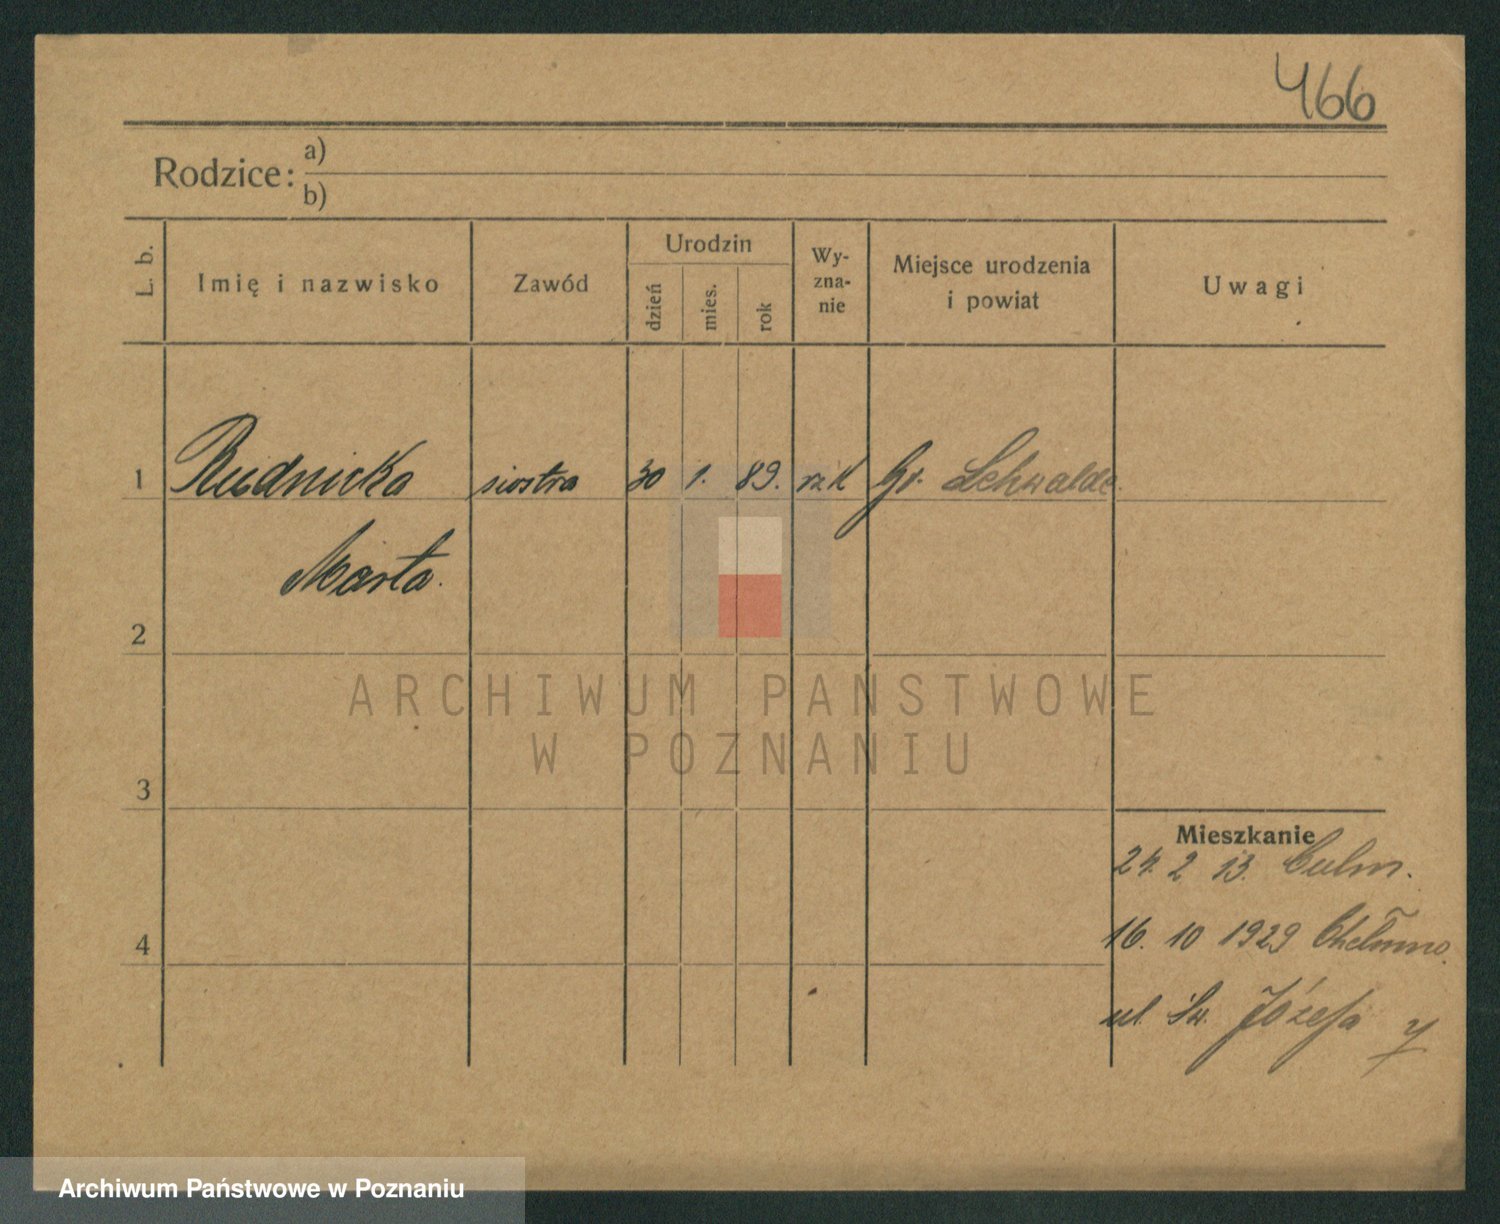 466
Rodzice: a)
b)
L. b.
Imię i nazwisko
Zawód
Urodzin
dzień
mies.
rok
Wy-
zna-
nie
Miejsce urodzenia
i powiat
Uwagi
1 Rudnicka siostra 30 1. 89. rz k Gr. Schwalde.
Marta.
2
ARCHIWUM PAŃSTWOWE
W POZNANIU
3
Mieszkanie
24. 2 13. Culm.
4
16. 10 1929 Chełmno.
ul. Św. Józefa 4
Archiwum Państwowe w Poznaniu